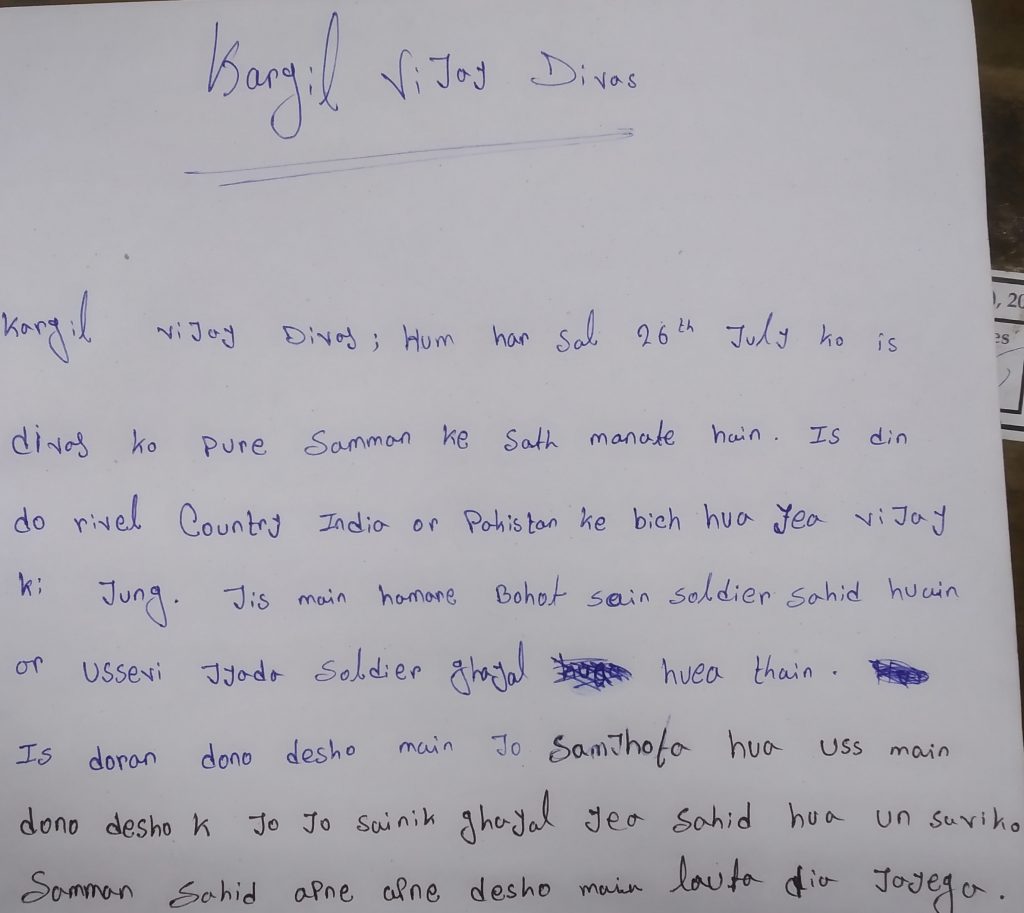 Kargil ViJay Divas
Kargil viJay Divas; Hum har Sal 26th July ko is
divas ko pure Samman ke Sath manate hain. Is din
do rivel Country India or Pakistan ke bich hua yea viJay
ki Jung. Jis main hamare Bohot sain soldier sahid huain
or ussevi Jyada Soldier ghayal huea thain.
Is doran dono desho main Jo SamJhota hua uss main
dono desho k Jo Jo sainik ghayal yea Sahid hua un saviko
Samman Sahid apne apne desho main lauta dia Jayega.
, 20
es